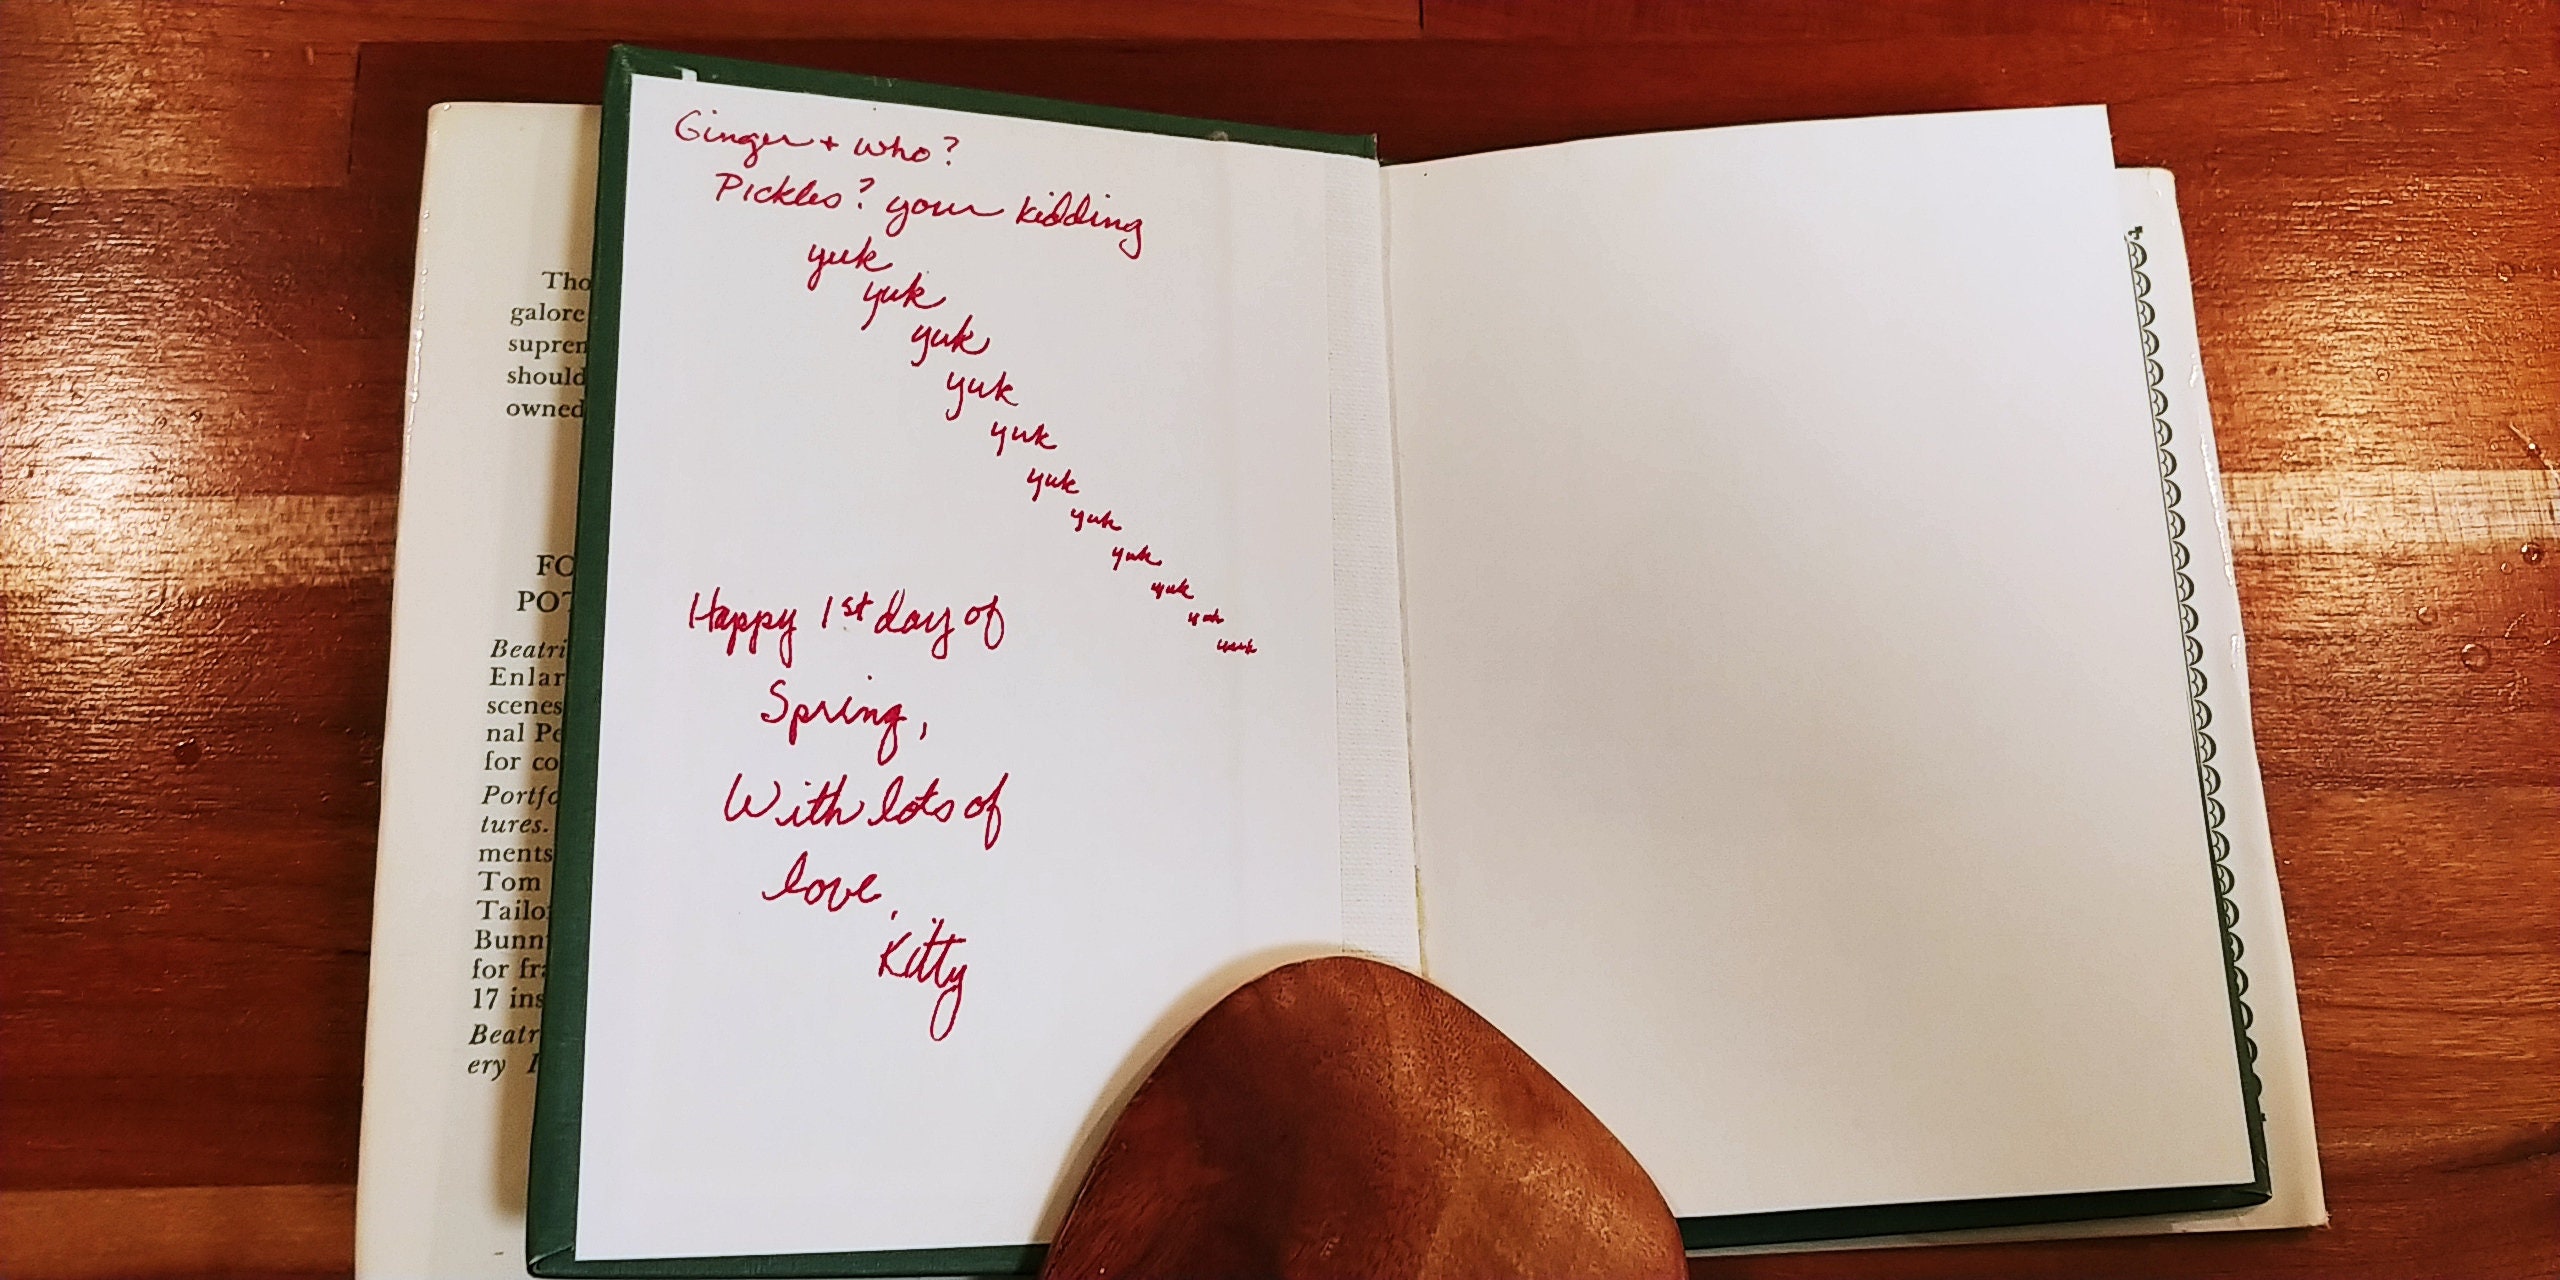 Ginger + who?
Pickles? your kidding
yuk
yuk
yuk
yuk
yuk
yuk
yuk
yuk
yuk
yuk
yuk
Happy 1st day of
Spring,
With lots of
love,
Kitty
Tho
galore
suprem
should
owned
FO
POT
Beatri
Enlar
scenes
nal Po
for co
Portfo
tures.
ments
Tom
Tailo
Bunn
for fra
17 ins
Beatr
ery I